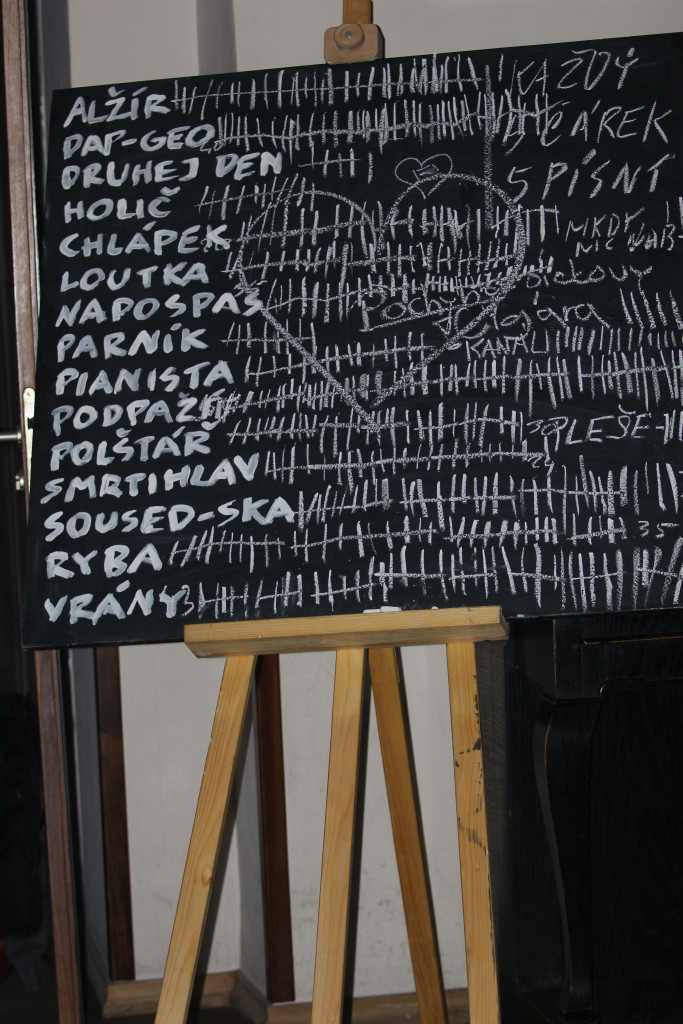 ALŽÍR KAŽDÝ
DAP-GEO 5 ČÁREK
DRUHEJ DEN 5 PÍSNÍ
HOLIČ
CHLÁPEK
LOUTKA
NAPOSPAS
PARNÍK
PIANISTA
PODPAŽÍ
POLŠTÁŘ PLEŠE-
SMRTIHLAV
SOUSED-SKA
RYBA 35
VRÁNY